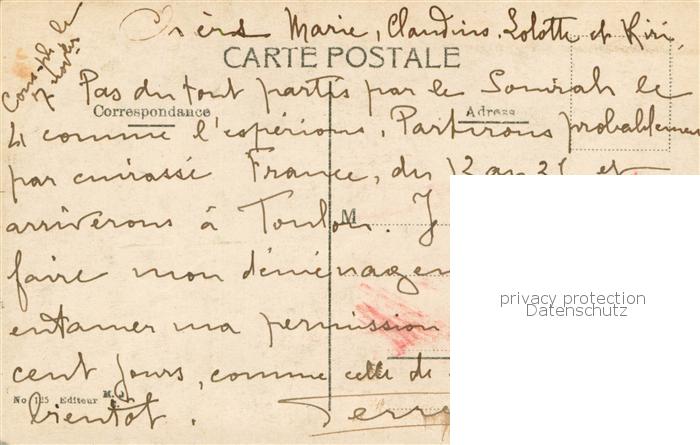 Chers Marie, Claudius, Lolotte et Kiri,
Const-ple le
7
CARTE POSTALE
Pas du tout partis par le le
Correspondance
Adresse
4 comme l'espérions. Partirons probablement
par cuirassé France, du 12 au et
arriverons à Toulon. J
M
faire mon déménagem
privacy protection
Datenschutz
entamer ma permission
cent jours, comme celle de
No 125 Editeur M. J. C.
bientôt. Pierre